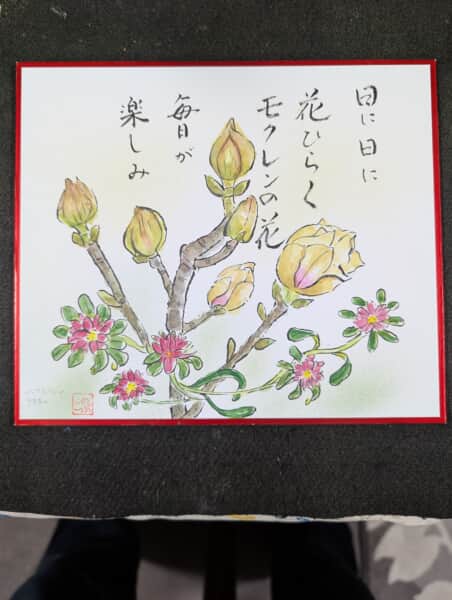 日に日に
花ひらく
モクレンの花
毎日が
楽しみ